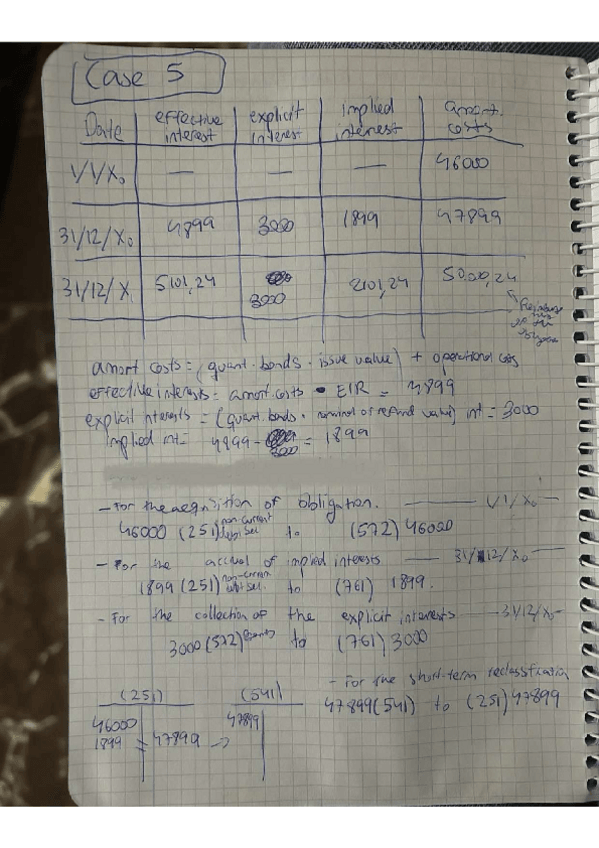 Case 5
Date effective interest explicit interest implied interest amort. costs
1/1/X₀ — — — 46000
31/12/X₀ 4899 3000 1899 47899
31/12/X 5101,24 3000 2101,24 5000,24
amort costs = (quant. bonds · issue value) + operational
effective interests = amort. costs · EIR = 4899
explicit interests = (quant. bonds · nominal or refund value) int = 3000
implied int = 4899 - 3000 = 1899
- For the acqnisition of obligation. 1/1/X₀
46000 (251) non-current to (572) 46000
- For the accrual of implied interests 31/12/X₀
1899 (251) non-curren to (761) 1899.
- For the collection of the explicit interests 31/12/X₀
3000 (572) to (761) 3000
- For the short-term reclassification
47899 (541) to (251) 47899
(251) (541)
46000 47899
1899 47899 →